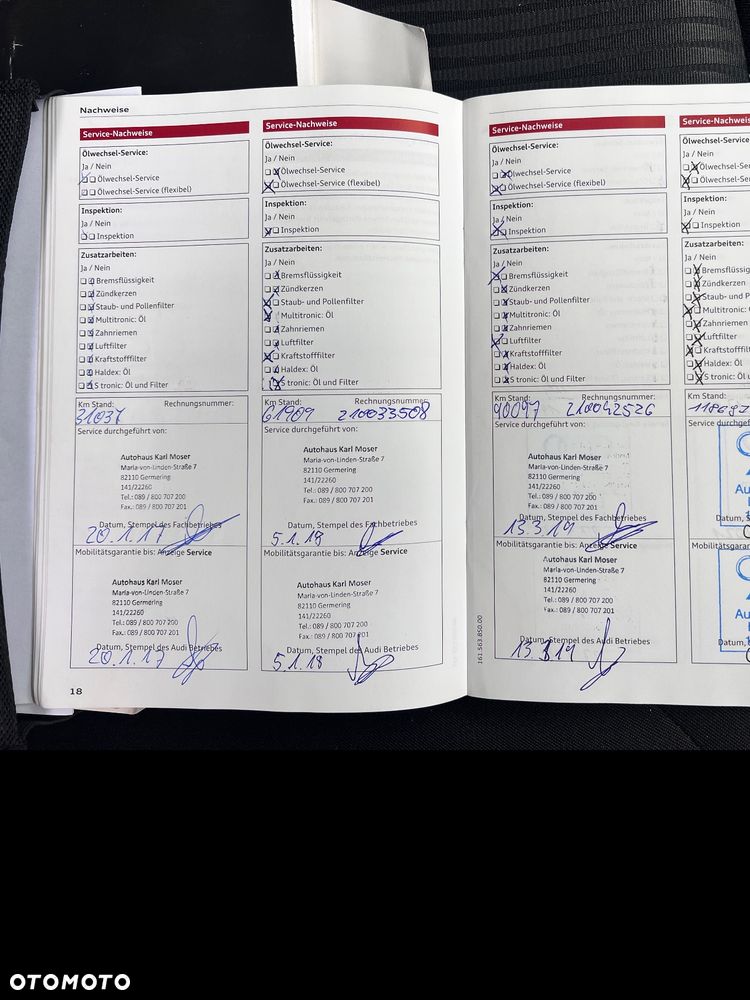 Nachweise
Service-Nachweise
Ölwechsel-Service:
Ja / Nein
Ölwechsel-Service
Ölwechsel-Service (flexibel)
Inspektion:
Ja / Nein
Inspektion
Zusatzarbeiten:
Ja / Nein
Bremsflüssigkeit
Zündkerzen
Staub- und Pollenfilter
Multitronic: Öl
Zahnriemen
Luftfilter
Kraftstofffilter
Haldex: Öl
S tronic: Öl und Filter
Km Stand: Rechnungsnummer:
31037
Service durchgeführt von:
Autohaus Karl Moser
Maria-von-Linden-Straße 7
82110 Germering
141/22260
Tel.: 089 / 800 707 200
Fax.: 089 / 800 707 201
Datum, Stempel des Fachbetriebes
20.1.17
Mobilitätsgarantie bis: Anzeige Service
Autohaus Karl Moser
Maria-von-Linden-Straße 7
82110 Germering
141/22260
Tel.: 089 / 800 707 200
Fax.: 089 / 800 707 201
Datum, Stempel des Audi Betriebes
20.1.17
18
Service-Nachweise
Ölwechsel-Service:
Ja / Nein
Ölwechsel-Service
Ölwechsel-Service (flexibel)
Inspektion:
Ja / Nein
Inspektion
Zusatzarbeiten:
Ja / Nein
Bremsflüssigkeit
Zündkerzen
Staub- und Pollenfilter
Multitronic: Öl
Zahnriemen
Luftfilter
Kraftstofffilter
Haldex: Öl
S tronic: Öl und Filter
Km Stand: Rechnungsnummer:
61909 210033508
Service durchgeführt von:
Autohaus Karl Moser
Maria-von-Linden-Straße 7
82110 Germering
141/22260
Tel.: 089 / 800 707 200
Fax.: 089 / 800 707 201
Datum, Stempel des Fachbetriebes
5.1.18
Mobilitätsgarantie bis: Anzeige Service
Autohaus Karl Moser
Maria-von-Linden-Straße 7
82110 Germering
141/22260
Tel.: 089 / 800 707 200
Fax.: 089 / 800 707 201
Datum, Stempel des Audi Betriebes
5.1.18
Service-Nachweise
Ölwechsel-Service:
Ja / Nein
Ölwechsel-Service
Ölwechsel-Service (flexibel)
Inspektion:
Ja / Nein
Inspektion
Zusatzarbeiten:
Ja / Nein
Bremsflüssigkeit
Zündkerzen
Staub- und Pollenfilter
Multitronic: Öl
Zahnriemen
Luftfilter
Kraftstofffilter
Haldex: Öl
S tronic: Öl und Filter
Km Stand: Rechnungsnummer:
90097 210042526
Service durchgeführt von:
Autohaus Karl Moser
Maria-von-Linden-Straße 7
82110 Germering
141/22260
Tel.: 089 / 800 707 200
Fax.: 089 / 800 707 201
Datum, Stempel des Fachbetriebes
13.3.19
Mobilitätsgarantie bis: Anzeige Service
Autohaus Karl Moser
Maria-von-Linden-Straße 7
82110 Germering
141/22260
Tel.: 089 / 800 707 200
Fax.: 089 / 800 707 201
Datum, Stempel des Audi Betriebes
13.3.19
161.563.850.00
Service-Nachweise
Ölwechsel-Service:
Ja / Nein
Ölwechsel-Service
Ölwechsel-Se
Inspektion:
Ja / Nein
Inspektion
Zusatzarbeiten:
Ja / Nein
Bremsflüssig
Zündkerzen
Staub- und Po
Multitronic: Ö
Zahnriemen
Luftfilter
Kraftstofffilt
Haldex: Öl
S tronic: Öl u
Km Stand:
Service durchgef
Au
Datum,
Mobilitätsgarantie
Au
Datum, S
OTOMOTO